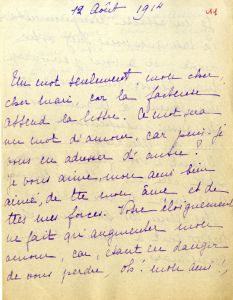 12 Août 1914
Un mot seulement, mon cher,
cher mari, car la facteuse
attend la lettre. Ce mot sera
un mot d'amour, car puis-je
vous en adresser d'autre ?
Je vous aime, mon ami bien
aimé, de tte mon âme et de
ttes mes forces. Votre éloignement
ne fait qu'augmenter mon
amour, car, étant en danger
de vous perdre, oh! mon ami!,